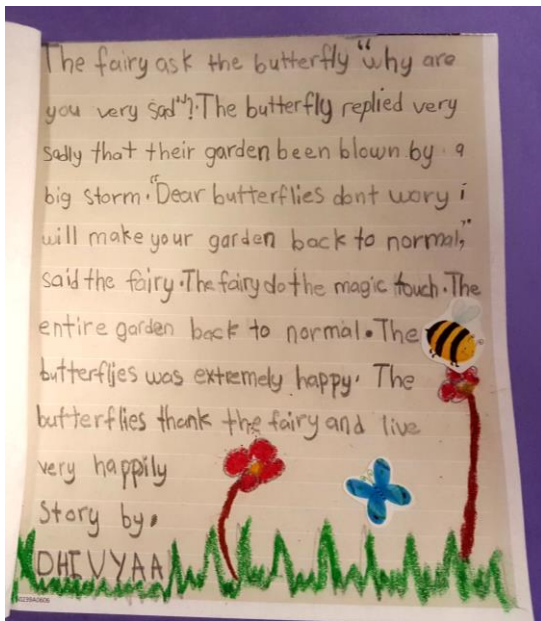 The fairy ask the butterfly "why are
you very sad"?. The butterfly replied very
sadly that their garden been blown by a
big storm. "Dear butterflies dont wory i
will make your garden back to normal,"
said the fairy. The fairy do the magic touch. The
entire garden back to normal. The
butterflies was extremely happy. The
butterflies thank the fairy and live
very happily
Story by.
DHIVYAA